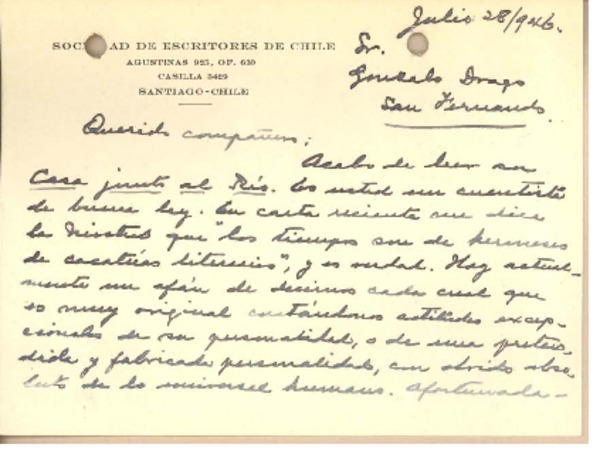 Julio 28/946.
SOCIEDAD DE ESCRITORES DE CHILE
AGUSTINAS 925, OF. 630
CASILLA 3429
SANTIAGO-CHILE
Sr.
Gonzalo Drago
San Fernando.
Querido compañero:
Acabo de leer su
Casa junto al Río. Es usted un cuentista
de buena ley. En carta reciente me dice
la que "los tiempos son de
de literarios", y es verdad. Hay actual-
mente un afán de decirnos cada cual que
es muy original contándonos actitudes excep-
cionales de su personalidad, o de una preten-
dida y fabricada personalidad, con olvido abso-
luto de lo universal humano. Afortunada-